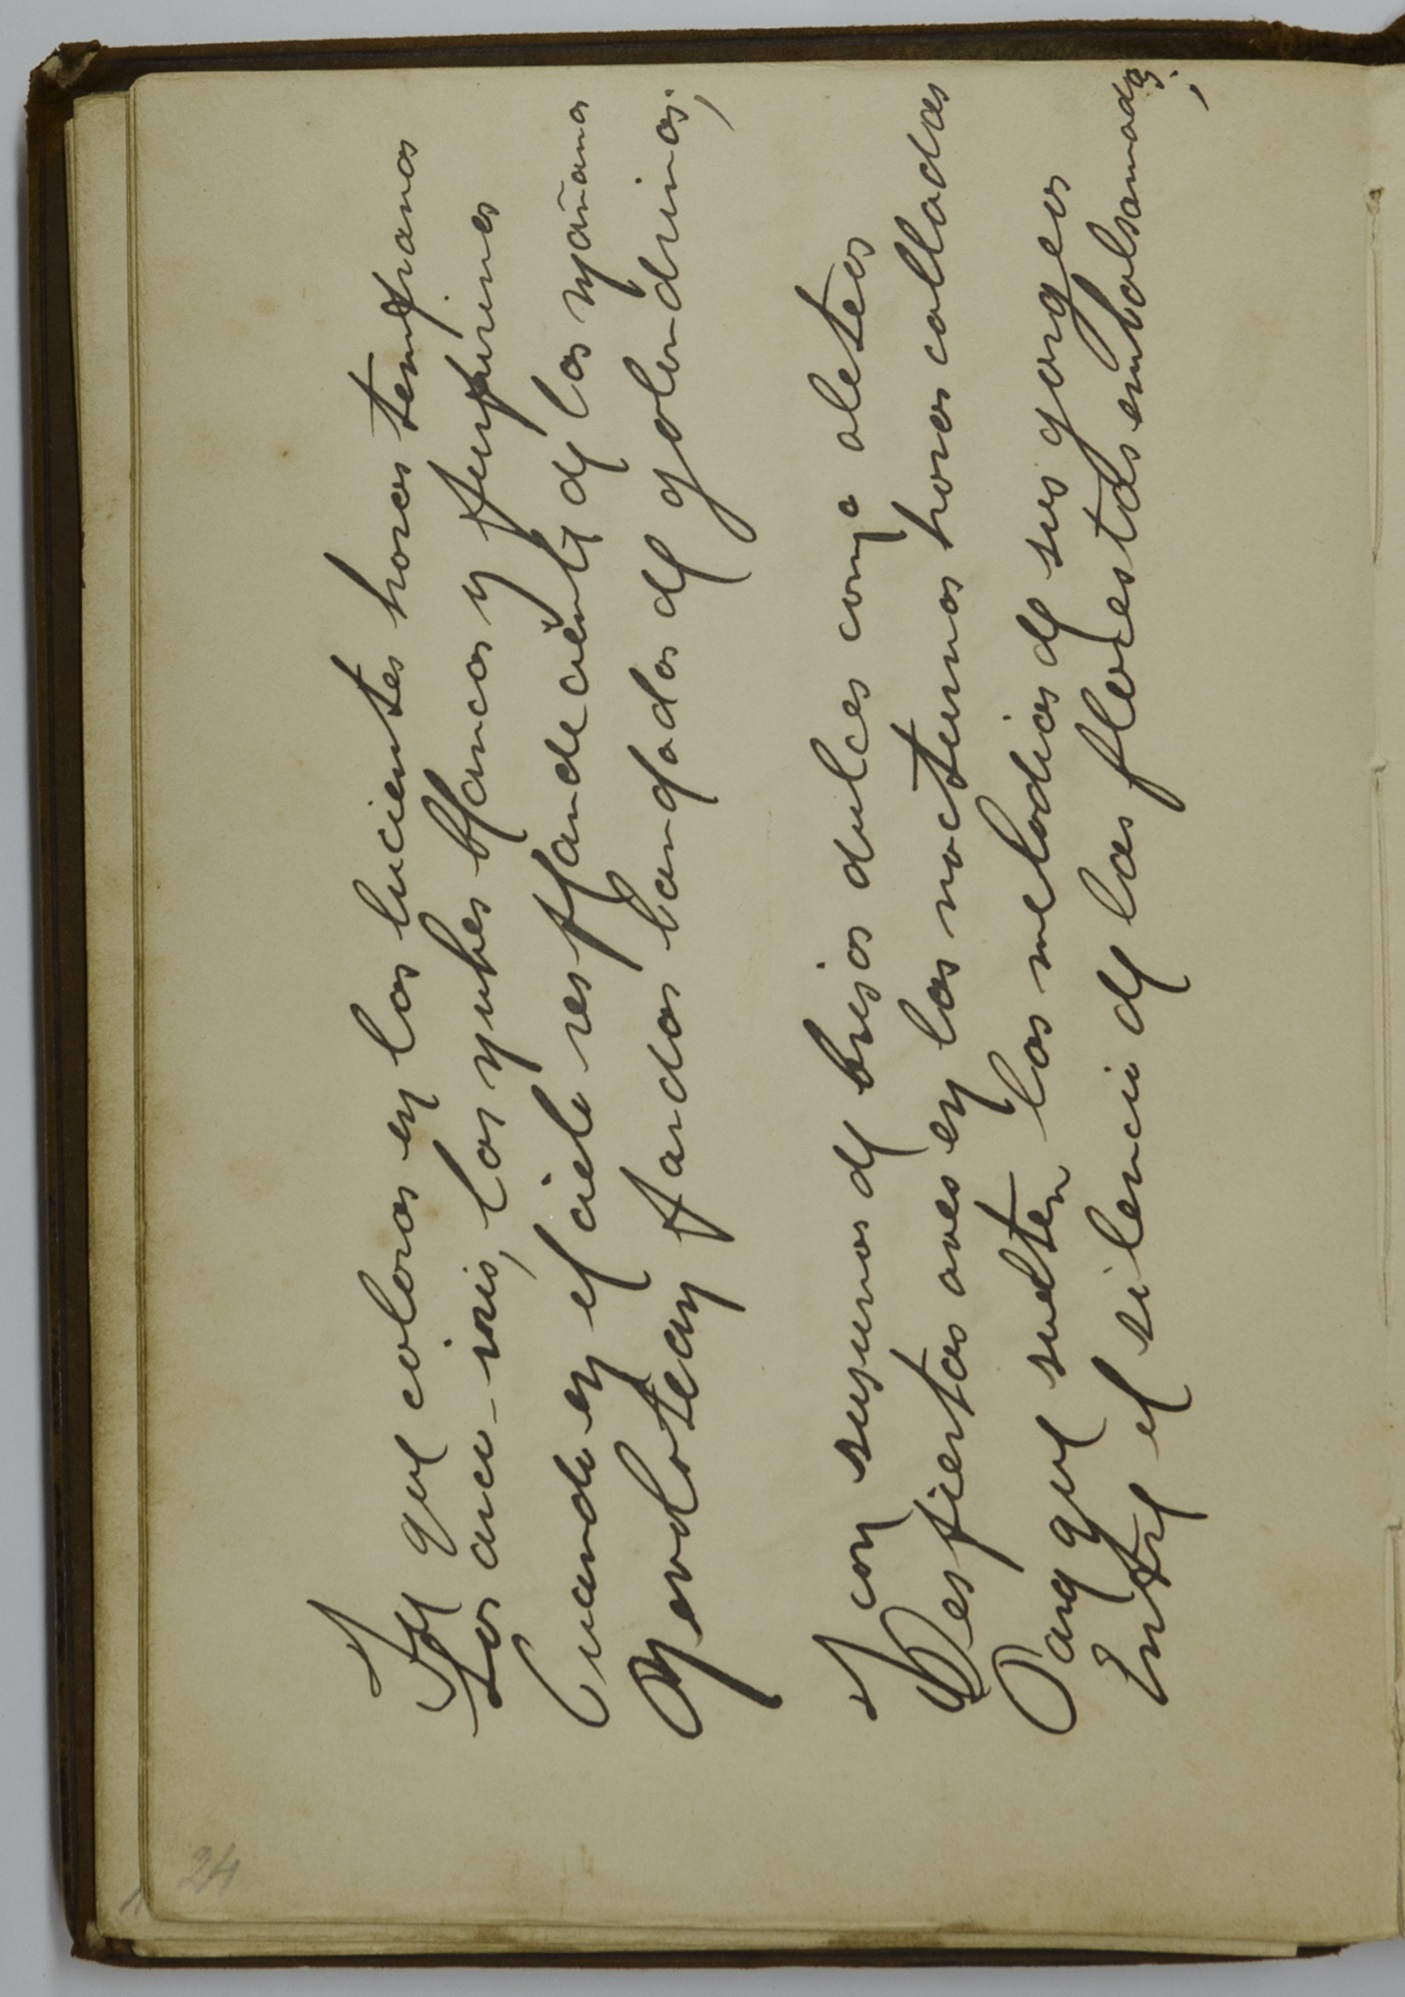 24
Tú que coloras en las lucientes horas tempranas
Los arco-iris, las nubes blancas y purpurinas
Cuando en el cielo resplandeciente de las mañanas
Revolotean pardas bandadas de golondrinas;
Y con susurros de brisas dulces como aleteos
Despiertas aves en las nocturnas horas calladas
Para que suelten las melodias de sus gorgeos
Entre el silencio de las florestas embalsamadas;